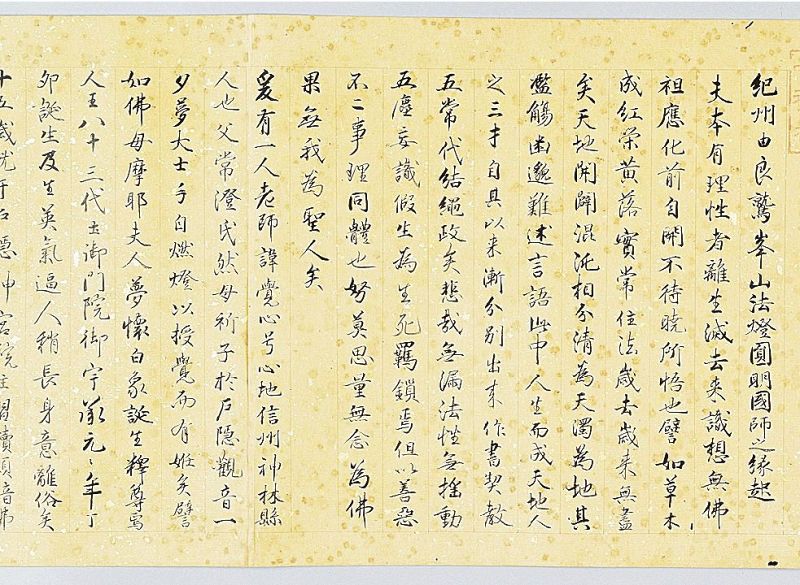 紀州由良鷲峯山法燈圓明國師之縁起
夫本有理性者離生滅去来識想無佛
祖應化前自開不待暁所悟也譬如草木
成紅栄黄落實常住法歳去歳来無盡
矣天地開闢混沌相分清為天濁為地其
濫觴幽邈難述言語此中人生而成天地人
之三才自具以来漸分別出来作書契教
五常代結縄政矣悲哉無漏法性無揺動
五塵妄識假生為生死羈鎖焉但以善惡
不二事理同體也努莫思量無念為佛
果無我為聖人矣
爰有一人老師諱覺心号心地信州神林縣
人也父常澄氏然母祈子於戸隠觀音一
夕夢大士手自燃燈以授覺而有姙矣譬
如佛母摩耶夫人夢懐白象誕生釋尊焉
人王八十三代土御門院御宇承元々年丁
卯誕生及生英氣逼人稍長身意離俗矣
十五歳